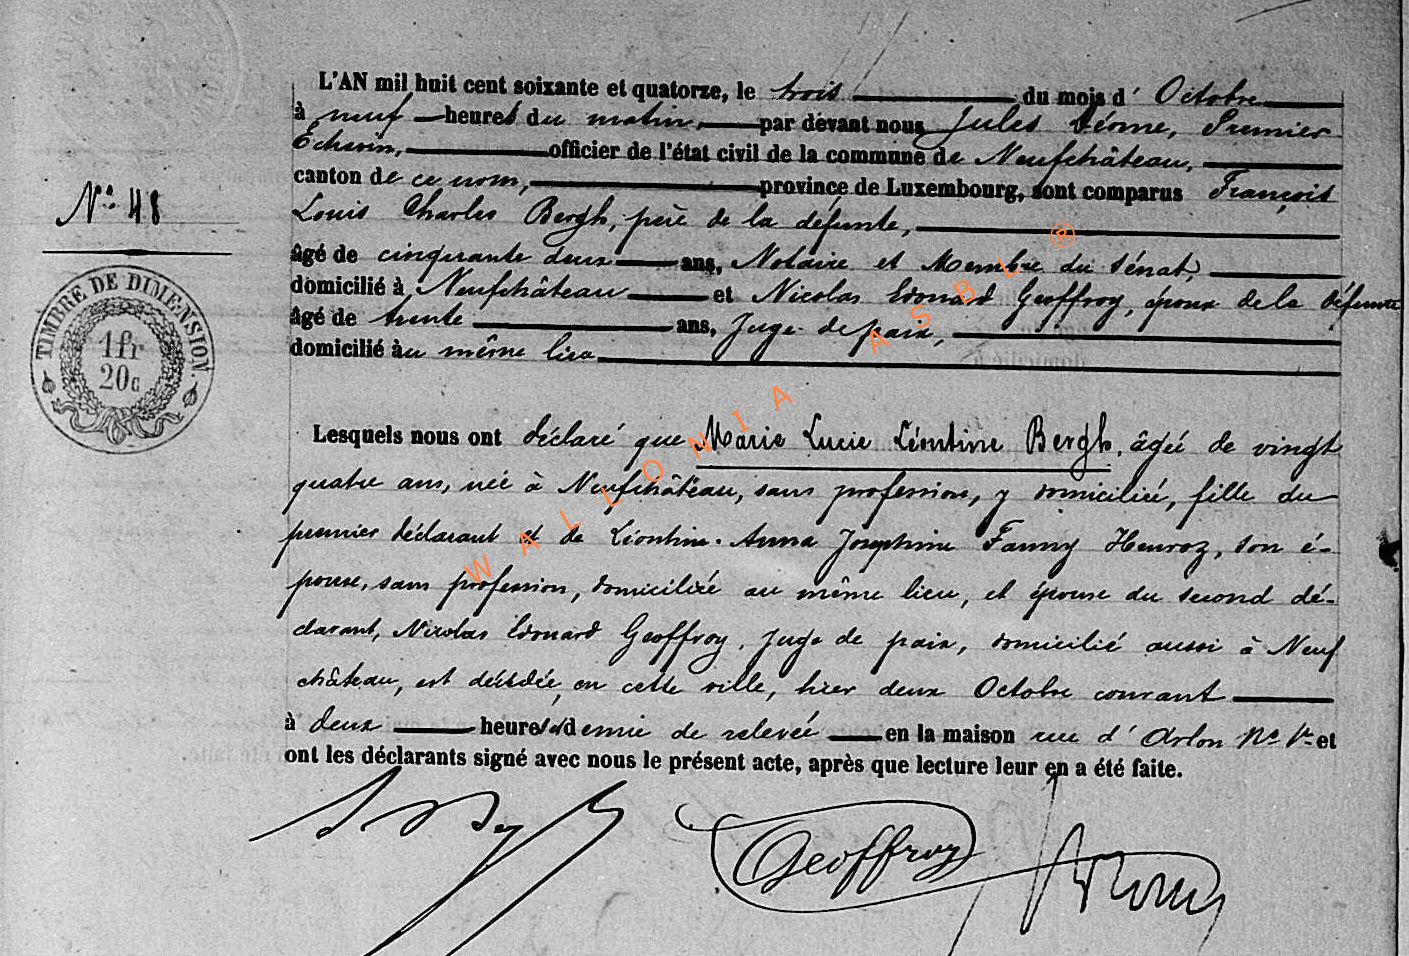 L'AN mil huit cent soixante et quatorze, le trois du mois d' Octobre
à neuf heures du matin, par devant nous Jules Déome, Premier
Echevin, officier de l'état civil de la commune de Neufchâteau,
canton de ce nom, province de Luxembourg, sont comparus François
Louis Charles Bergh, père de la défunte,
âgé de cinquante deux ans, Notaire et Membre du Sénat,
domicilié à Neufchâteau et Nicolas Edouard Geoffroy, époux de la défunte
âgé de trente ans, Juge de paix,
domicilié au même lieu
N° 48
TIMBRE DE DIMENSION.
1fr
20c
Lesquels nous ont déclaré que Marie Lucie Léontine Bergh, âgée de vingt
quatre ans, née à Neufchâteau, sans profession, y domiciliée, fille du
premier déclarant et de Léontine Anna Josephine Fanny Henroz, son é-
pouse, sans profession, domiciliée au même lieu, et épouse du second dé-
clarant, Nicolas Edouard Geoffroy, Juge de paix, domicilié aussi à Neuf
château, est décédée en cette ville, hier deux Octobre courant
à deux heures et demie de relevée en la maison rue d' Arlon N° 1er et
ont les déclarants signé avec nous le présent acte, après que lecture leur en a été faite.
Geoffroy
WALLONIA ASBL ®